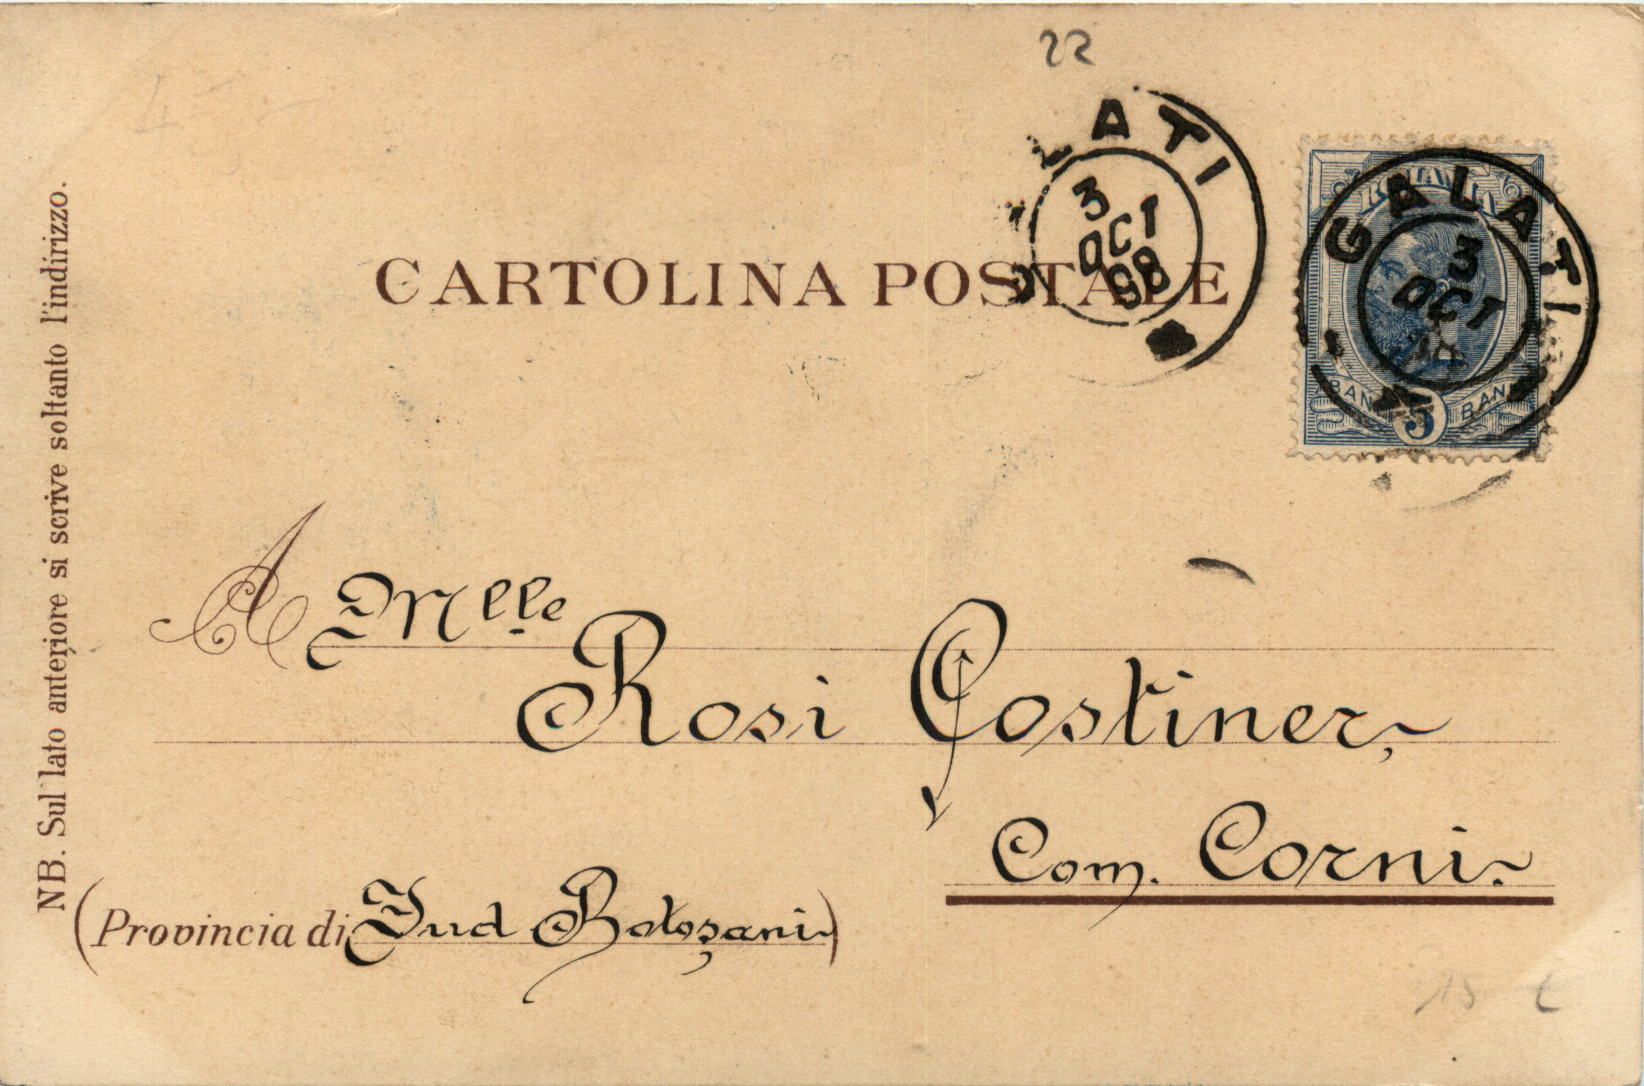 22
CARTOLINA POSTALE
GALATI
3
OCT
98
ROMANIA
GALATI
3
OCT
BANI 5 BANI
NB. Sul lato anteriore si scrive soltanto l'indirizzo.
A Mlle
Rosi Costiner,
Com. Corni.
(Provincia di Jud Botoşani)
15 €